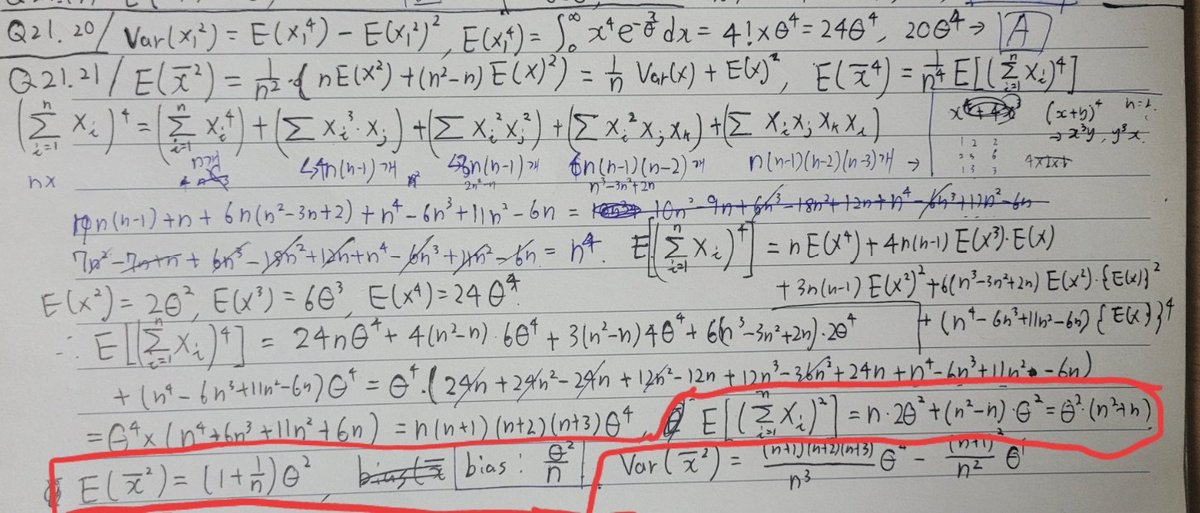 Q21.20/ Var(X₁²) = E(X₁⁴) - E(X₁²)², E(X₁⁴) = ∫₀^∞ x⁴e^(-x/θ) dx = 4! × θ⁴ = 24θ⁴, 20θ⁴ → A
Q21.21/ E(x̄²) = 1/n² · { nE(X²) + (n²-n) E(X)² } = 1/n Var(X) + E(X)², E(x̄⁴) = 1/n⁴ E[(Σ_{i=1}^n X_i)⁴]
(Σ_{i=1}^n X_i)⁴ = (Σ_{i=1}^n X_i⁴) + (Σ X_i³·X_j) + (Σ X_i² X_j²) + (Σ X_i² X_j X_k) + (Σ X_i X_j X_k X_l)
(x+y)⁴
⇒ x³y, y³x
nx
n개 4n(n-1)개 3n(n-1)개 6n(n-1)(n-2)개 n(n-1)(n-2)(n-3)개 →
2n²-n n³-3n²+2n
n(n-1) + n + 6n(n²-3n+2) + n⁴ - 6n³ + 11n² - 6n = 10n² - 9n + 6n³ - 18n² + 12n + n⁴ - 6n³ + 11n² - 6n
7n² - 7n + n + 6n³ - 18n² + 12n + n⁴ - 6n³ + 11n² - 6n = n⁴. E[(Σ_{i=1}^n X_i)⁴] = nE(X⁴) + 4n(n-1) E(X³)·E(X)
+ 3n(n-1) E(X²)² + 6(n³-3n²+2n) E(X²)·{E(X)}²
+ (n⁴ - 6n³ + 11n² - 6n) {E(X)}⁴
E(X²) = 2θ², E(X³) = 6θ³, E(X⁴) = 24θ⁴
∴ E[(Σ_{i=1}^n X_i)⁴] = 24nθ⁴ + 4(n²-n)·6θ⁴ + 3(n²-n)4θ⁴ + 6(n³-3n²+2n)·2θ⁴
+ (n⁴ - 6n³ + 11n² - 6n)θ⁴ = θ⁴·(24n + 24n² - 24n + 12n² - 12n + 12n³ - 36n² + 24n + n⁴ - 6n³ + 11n² - 6n)
= θ⁴ × (n⁴ + 6n³ + 11n² + 6n) = n(n+1)(n+2)(n+3)θ⁴, E[(Σ_{i=1}^n X_i)²] = n·2θ² + (n²-n)·θ² = θ²·(n²+n)
E(x̄²) = (1 + 1/n)θ², bias(x̄ bias : θ²/n Var(x̄²) = (n+1)(n+2)(n+3)/n³ θ⁴ - (n+1)²/n² θ⁴